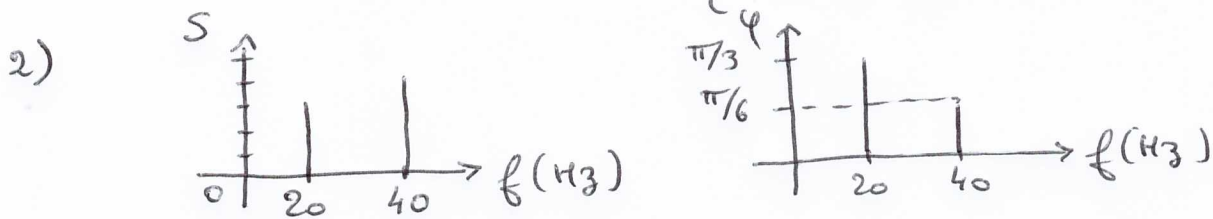 2)
S
0 20 40 f(Hz)
φ
π/3
π/6
20 40 f(Hz)